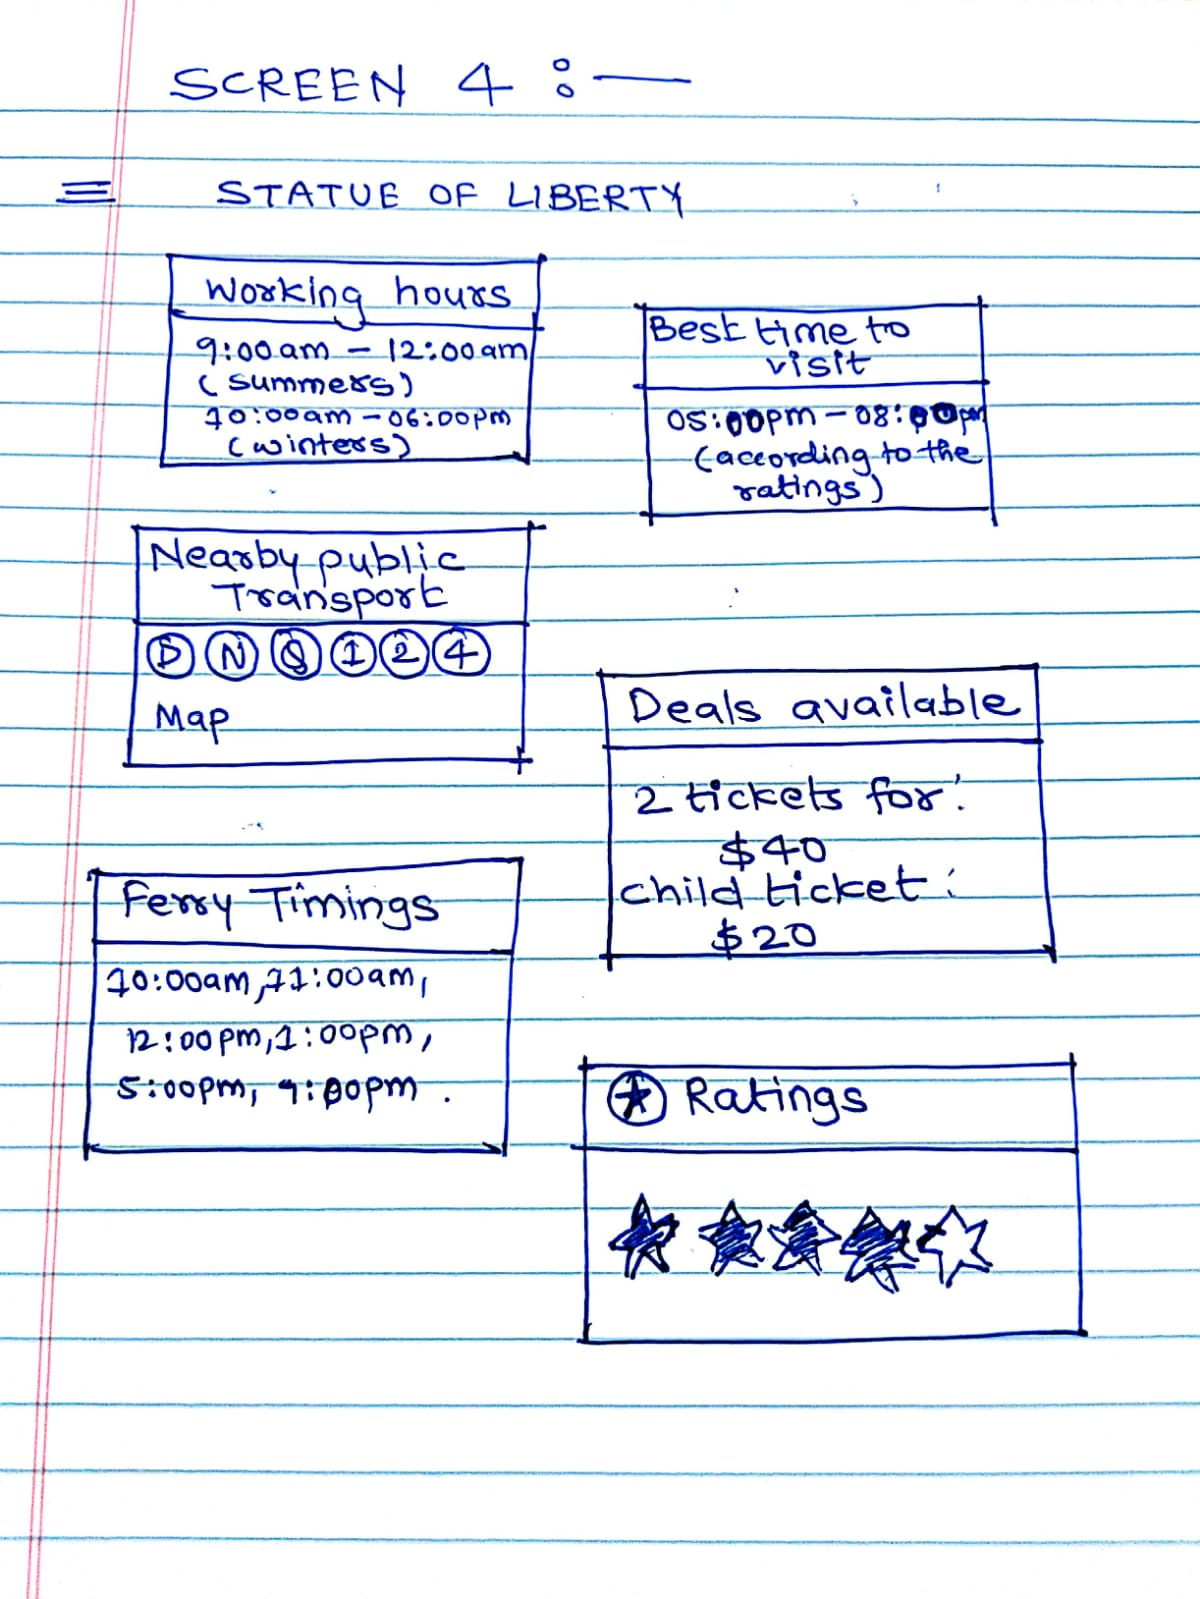 SCREEN 4 :—
STATUE OF LIBERTY
Working hours
9:00am - 12:00am
(summers)
10:00am - 06:00pm
(winters)
Best time to
visit
05:00pm - 08:00pm
(according to the
ratings)
Nearby public
Transport
D N Q 1 2 4
Map
Deals available
2 tickets for:
$40
child ticket:
$20
Ferry Timings
10:00am, 11:00am,
12:00pm, 1:00pm,
5:00pm, 9:00pm.
Ratings